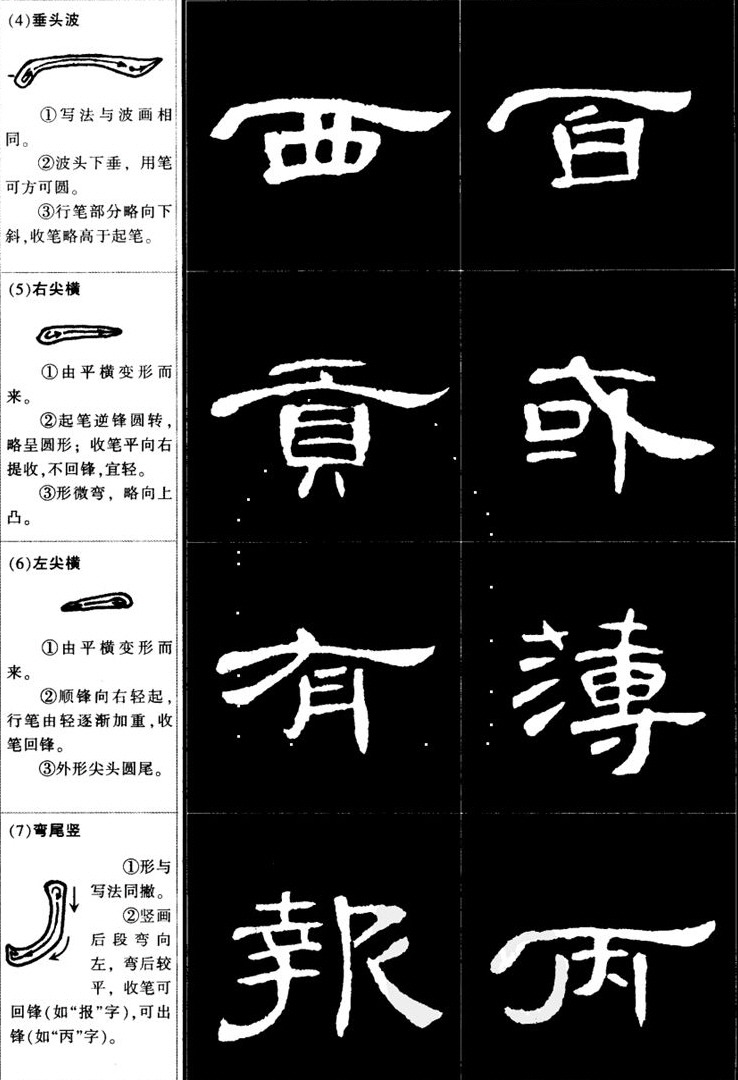 (4)垂头波
①写法与波画相
同。
②波头下垂，用笔
可方可圆。
③行笔部分略向下
斜,收笔略高于起笔。
西 百
(5)右尖横
①由平横变形而
来。
②起笔逆锋圆转，
略呈圆形；收笔平向右
提收,不回锋,宜轻。
③形微弯，略向上
凸。
貢 或
(6)左尖横
①由平横变形而
来。
②顺锋向右轻起，
行笔由轻逐渐加重,收
笔回锋。
③外形尖头圆尾。
有 薄
(7)弯尾竖
①形与
写法同撇。
②竖画
后段弯向
左，弯后较
平，收笔可
回锋(如“报”字),可出
锋(如“丙”字)。
報 丙